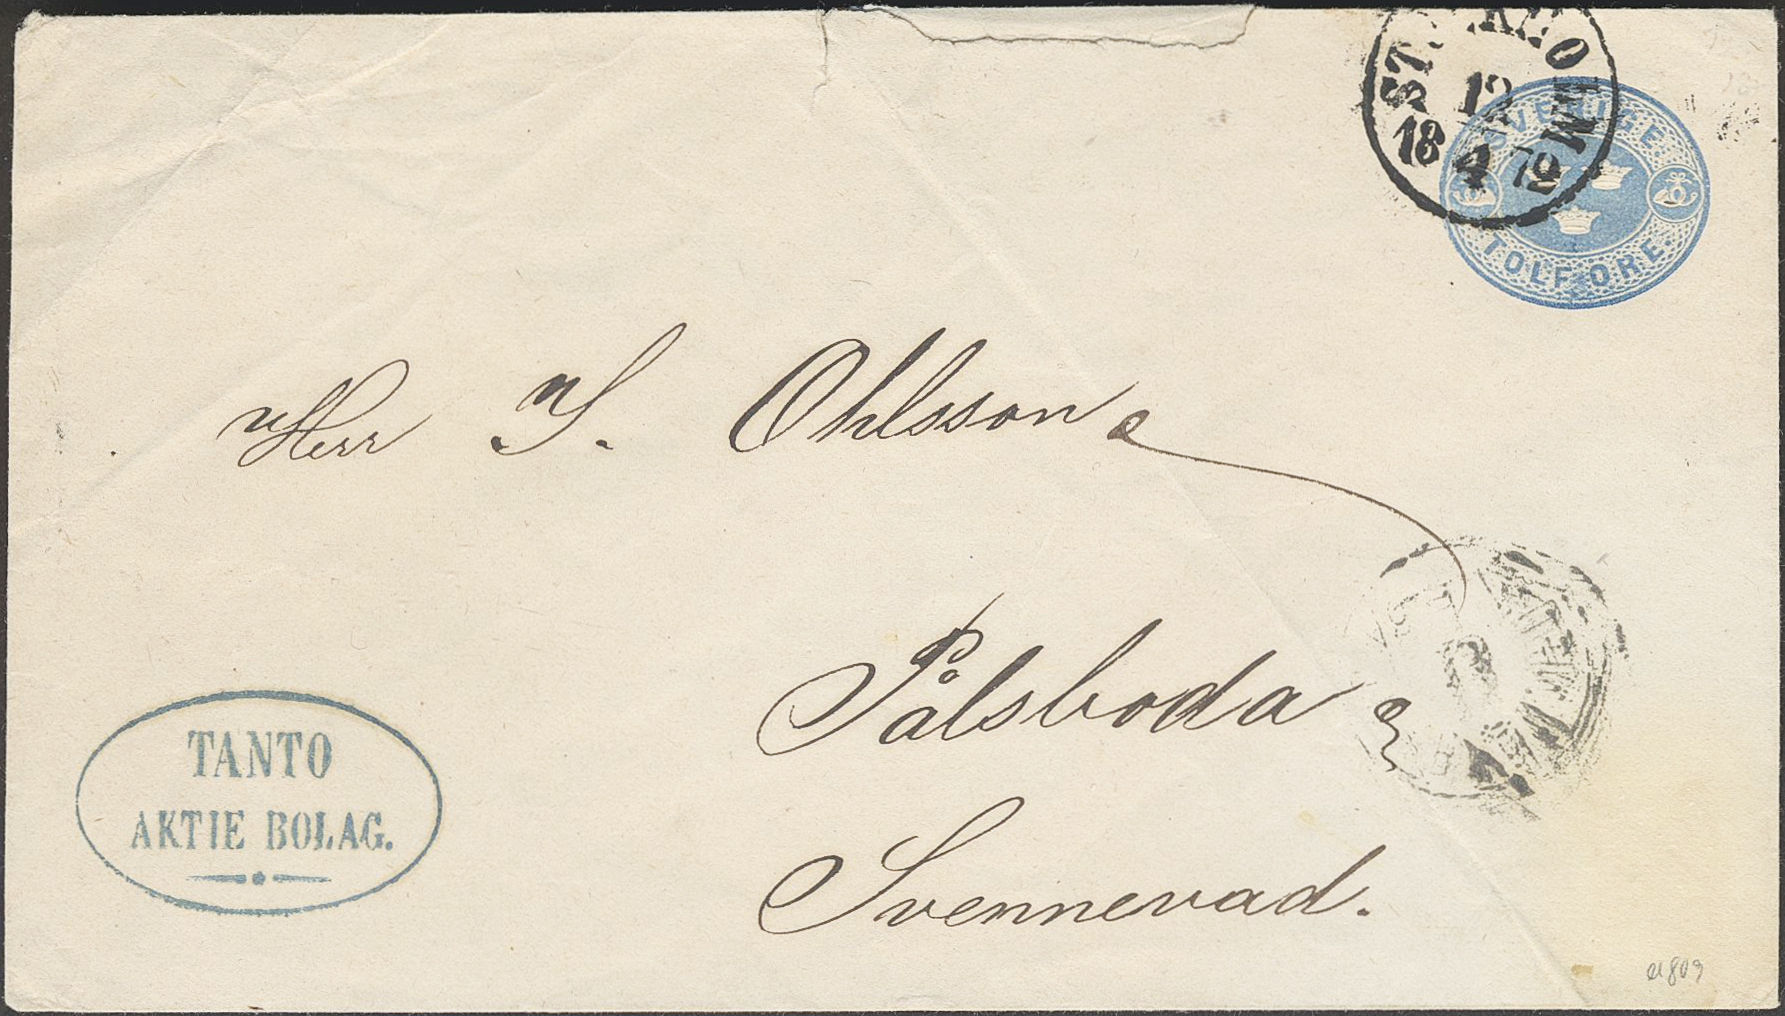 STOCKHOLM
12
4
18 79
SVERIGE
TOLF ÖRE.
Herr S. Ohlsson
Pålsboda
Svennevad.
TANTO
AKTIE BOLAG.